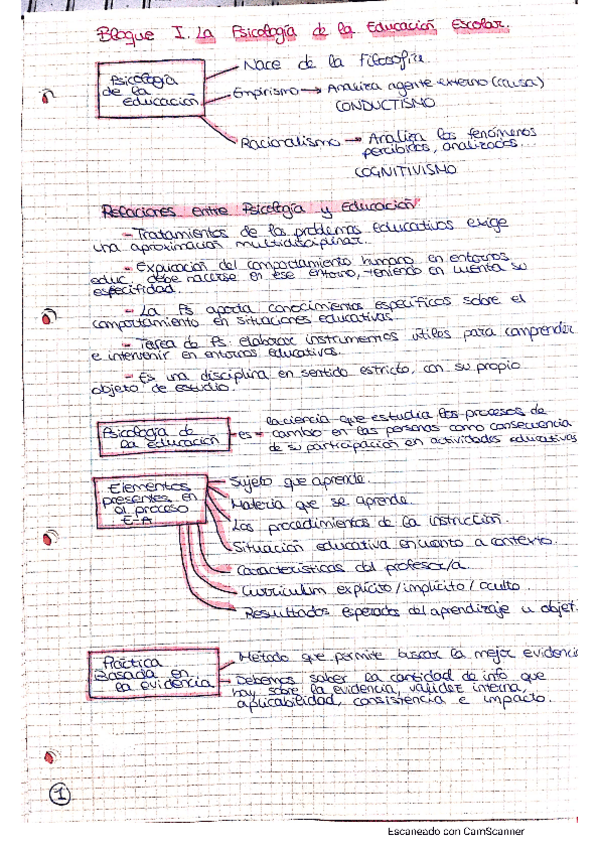 Bloque I. La Psicología de la Educación Escolar.
Psicología
de la
educación
Nace de la Filosofía
Empirismo → Analiza agente externo (causa)
CONDUCTISMO
Racionalismo → Analiza los fenómenos
percibidos, analizados...
COGNITIVISMO
Relaciones entre Psicología y Educación
- Tratamientos de los problemas educativos exige
una aproximación multidisciplinar.
- Explicación del comportamiento humano en entornos
educ. debe hacerse en ese entorno, teniendo en cuenta su
especificidad.
- La Ps aporta conocimientos específicos sobre el
comportamiento en situaciones educativas
- Tarea de Ps. elaborar instrumentos útiles para comprender
e intervenir en entornos educativos.
- Es una disciplina en sentido estricto, con su propio
objeto de estudio.
Psicología de
la educación
es
la ciencia que estudia los procesos de
cambio en las personas como consecuencia
de su participación en actividades educativas
Elementos
presentes en
el proceso
E-A
Sujeto que aprende.
Materia que se aprende.
Los procedimientos de la instrucción.
Situación educativa en cuanto a contexto.
Características del profesor/a.
Curriculum explícito / implícito / oculto.
Resultados esperados del aprendizaje u objet.
Práctica
Basada en
la evidencia
Método que permite buscar la mejor evidenci
Debemos saber la cantidad de info que
hay sobre la evidencia, validez interna,
aplicabilidad, consistencia e impacto.
1
Escaneado con CamScanner